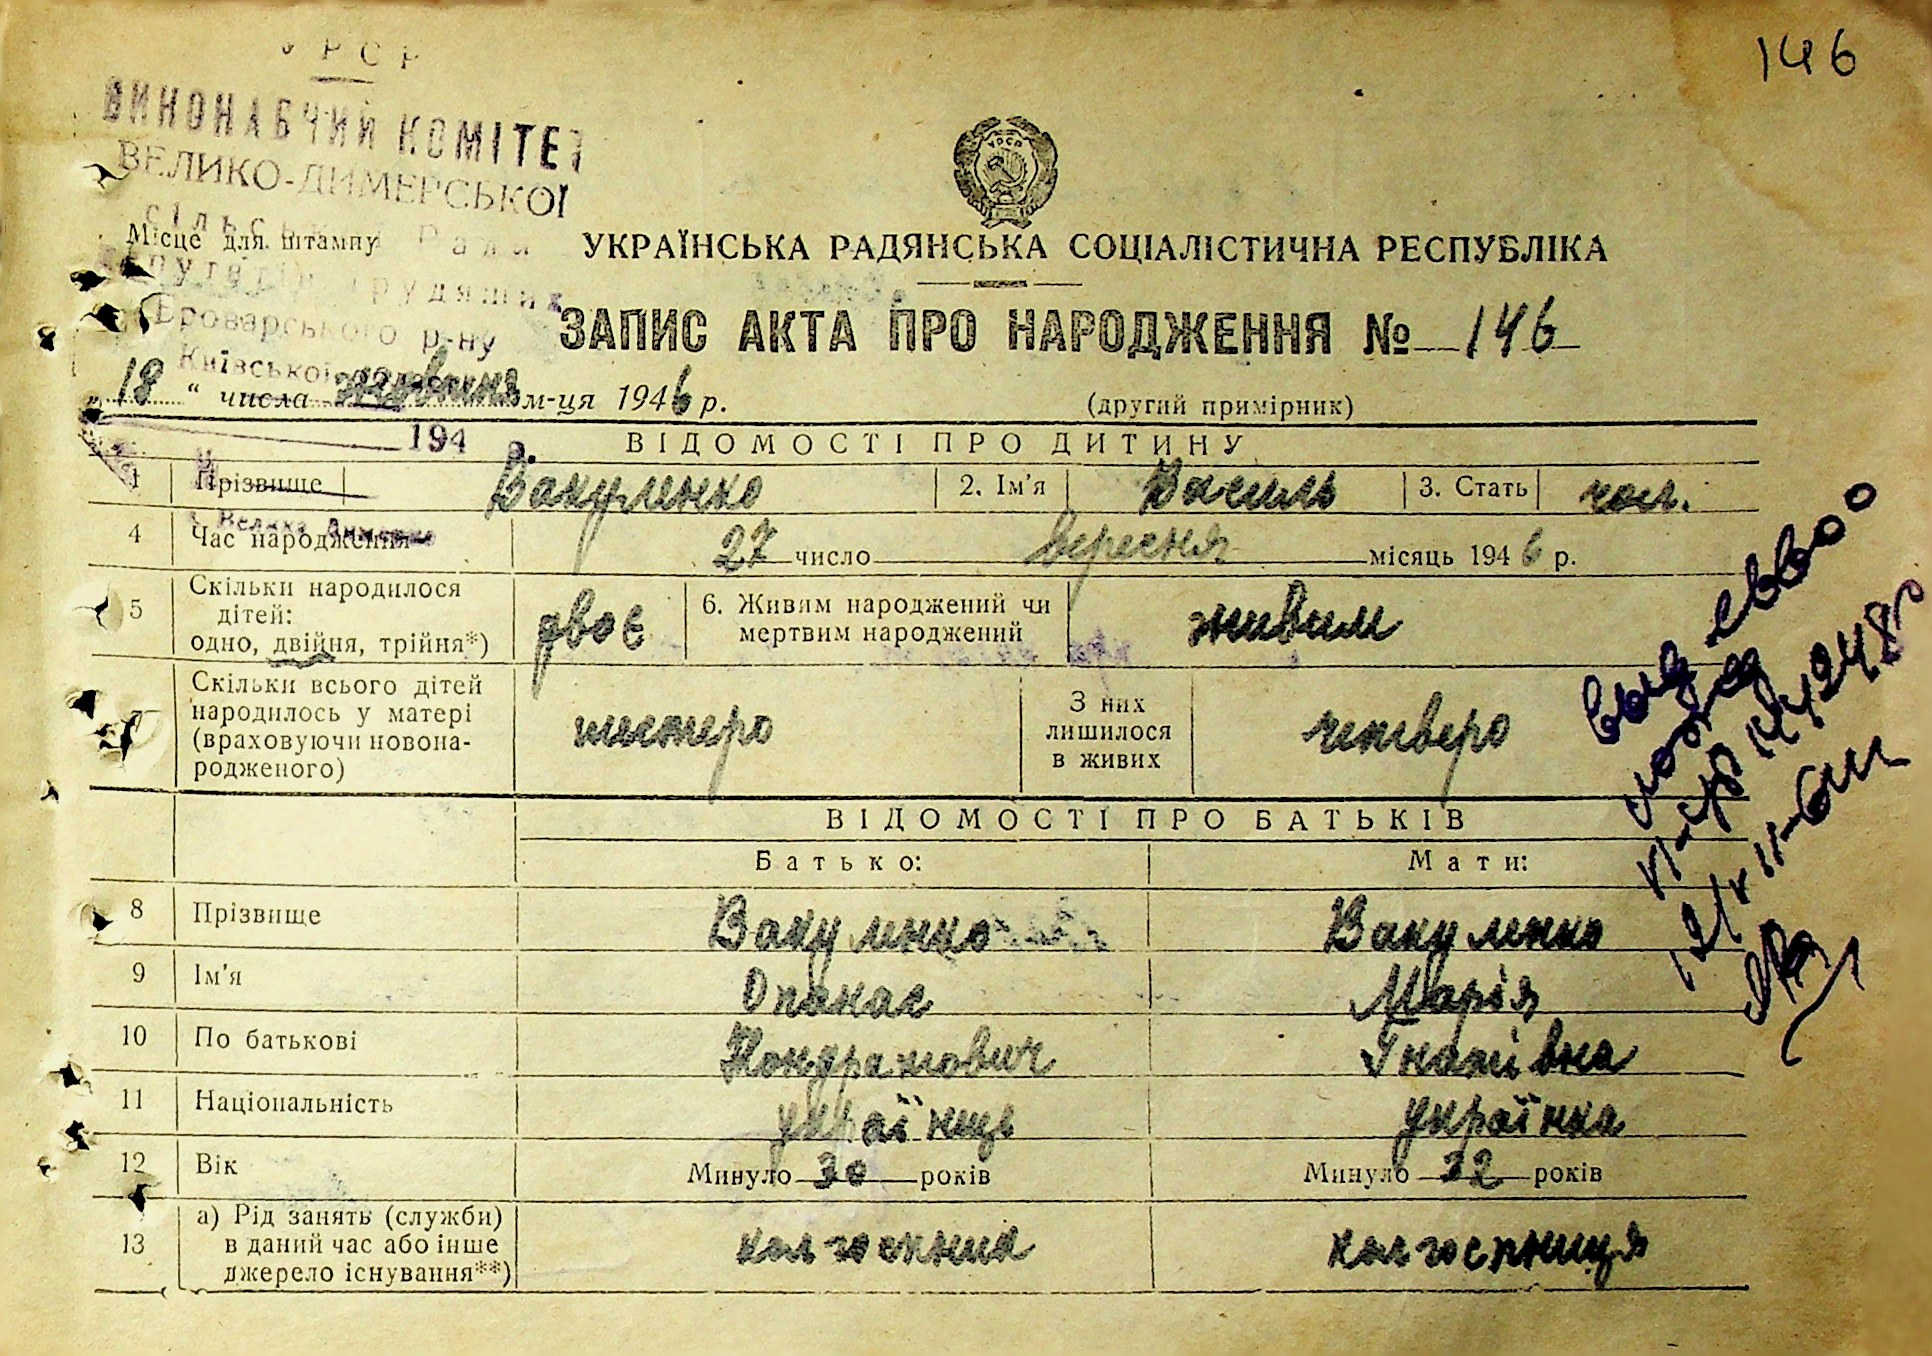 146
УРСР
ВИКОНАВЧИЙ КОМІТЕТ
ВЕЛИКО-ДИМЕРСЬКОЇ
сільської Ради
депутатів трудящих
Броварського р-ну
Київської
Місце для штампу
УРСР
УКРАЇНСЬКА РАДЯНСЬКА СОЦІАЛІСТИЧНА РЕСПУБЛІКА
ЗАПИС АКТА ПРО НАРОДЖЕННЯ № 146
18 “ числа жовтня м-ця 1946 р. (другий примірник)
194
ВІДОМОСТІ ПРО ДИТИНУ
1 Прізвище Вакуленко 2. Ім'я Василь 3. Стать чол.
с. Велика Димерка
4 Час народження 27 число вересня місяць 1946 р.
5 Скільки народилося дітей: одно, двійня, трійня*) двоє 6. Живим народжений чи мертвим народжений живим
7 Скільки всього дітей народилось у матері (враховуючи новонародженого) шестеро З них лишилося в живих четверо
ВІДОМОСТІ ПРО БАТЬКІВ
Батько: Мати:
8 Прізвище Вакуленко Вакуленко
9 Ім'я Опанас Марія
10 По батькові Кондратович Гнатівна
11 Національність українець українка
12 Вік Минуло 30 років Минуло 32 років
13 а) Рід занять (служби) в даний час або інше джерело існування**) колгоспник колгоспниця